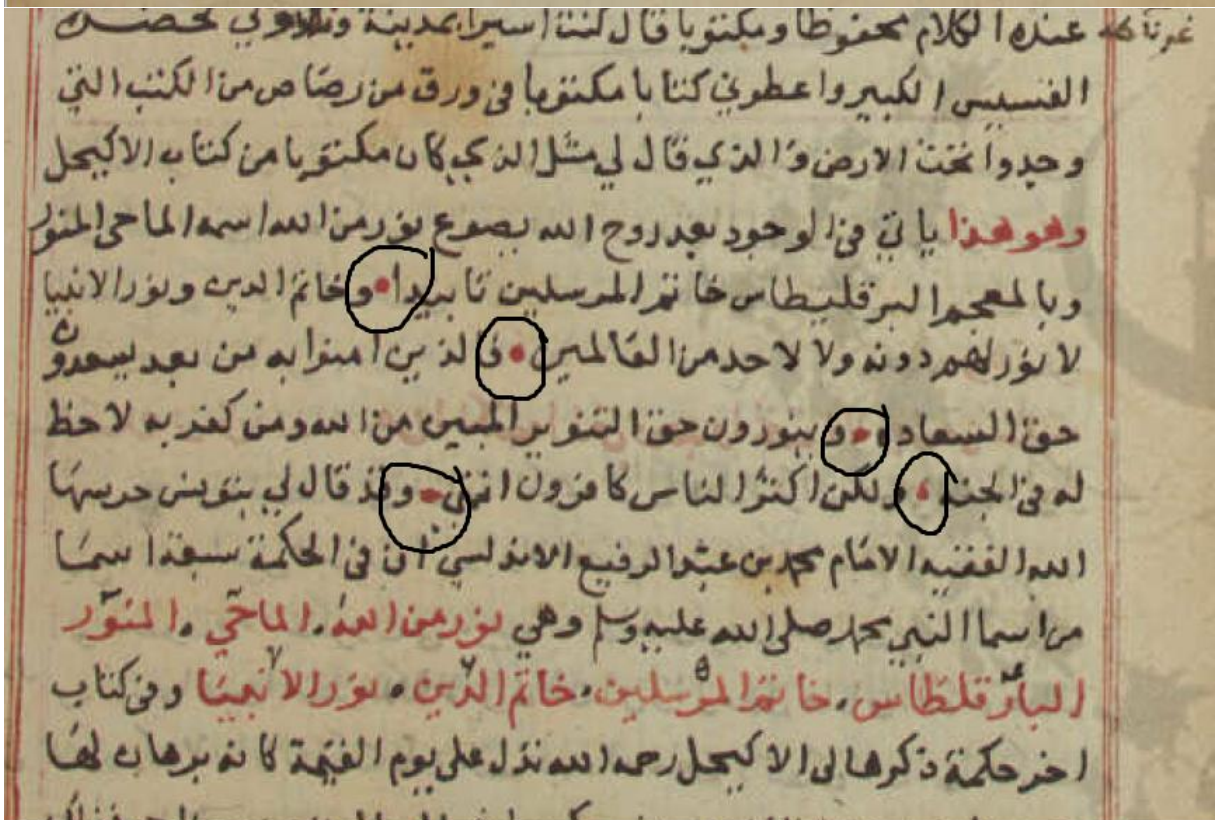 عنده الكلام محفوظا ومكتوبا قال كنت اسيرا بمدينة
غرناطه
القسيس الكبير واعطوني كتابا مكتوبا في ورق من رصاص من الكتب التي
وجدوا تحت الارض والذي قال لي مثل الذي كان مكتوبا من كتاب الاكيحل
وهو هذا ياتي في الوجود بعد روح الله يصوع نور من الله اسمه الماحي المنور
وبالمعجم البرقليطاس خاتم المرسلين تابيدا • وخاتم الدين ونور الانبيا
لا نور لهم دونه ولا لاحد من العالمين • والذين امنوا به من بعد يسعدون
حق السعاده • وينورون حق التنوير المبين من الله ومن كفر به لاحظ
له في الجنه • ولكن اكثر الناس كافرون انتهى • وقد قال لي بتونس حرسها
الله الفقيه الامام محمد بن عبد الرفيع الاندلسي ان في الحكمة سبعة اسما
من اسما النبي محمد صلى الله عليه وسلم وهي نور من الله . الماحي . المنور
البارقلطاس . خاتم المرسلين . خاتم الدين . نور الانبيا وفي كتاب
اخر حكمة ذكرها لي الاكيحل رحمه الله تدل على يوم القيمة كانه برهان لها